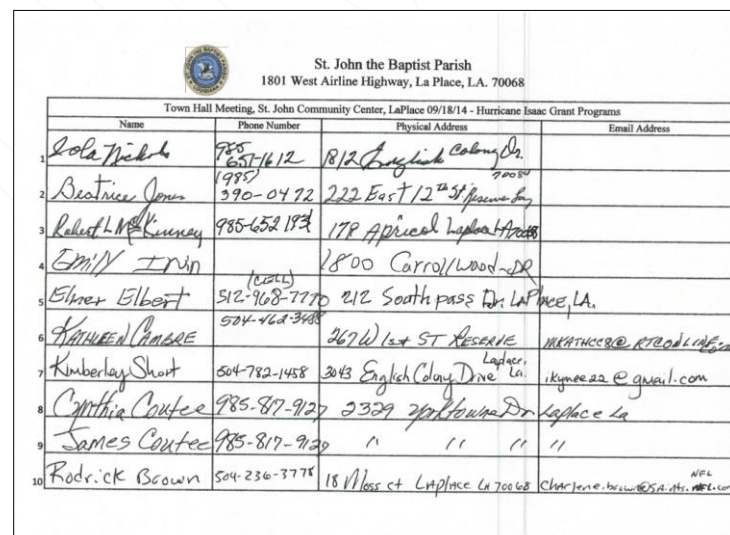 St. John the Baptist Parish
1801 West Airline Highway, La Place, LA. 70068
Town Hall Meeting, St. John Community Center, LaPlace 09/18/14 - Hurricane Isaac Grant Programs
Name Phone Number Physical Address Email Address
1 Iola Nichols 985 651-1612 1812 English Colony Dr.
2 Beatrice Jones (985) 390-0472 222 East 12th St Reserve 70084
3 Robert L McKinney 985-652 178 Apricol Laplace LA 70068
4 Emily Irvin 1800 Carrollwood DR
5 Elmer Elbert (CELL) 512-968-7770 212 Southpass Dr. LaPlace, LA.
6 KATHLEEN CAMBRE 504-462-3488 267 W 1st ST RESERVE
7 Kimberley Short 504-782-1458 3043 English Colony Drive Laplace, La. ikynee22@gmail.com
8 Cynthia Coutee 985-817-9127 2329 Yorktowne Dr Laplace La
9 James Coutee 985-817-9127 " " " "
10 Rodrick Brown 504-236-3778 18 Moss ct LAPlACE LA 70068